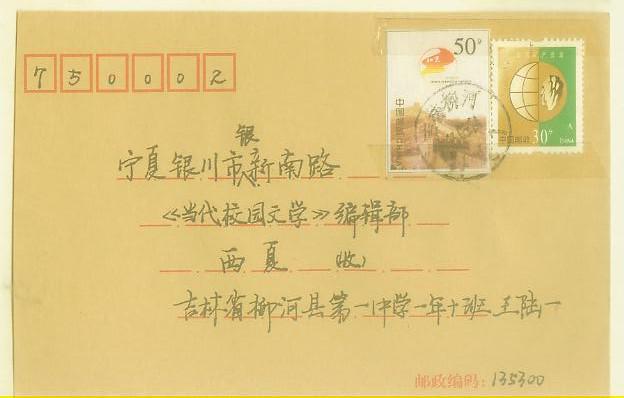 750002
50分
中国邮政
30分
中国邮政
柳河
银
宁夏银川市新南路
《当代校园文学》编辑部
西夏 (收)
吉林省柳河县第一中学一年十班 王陆一
邮政编码:135300